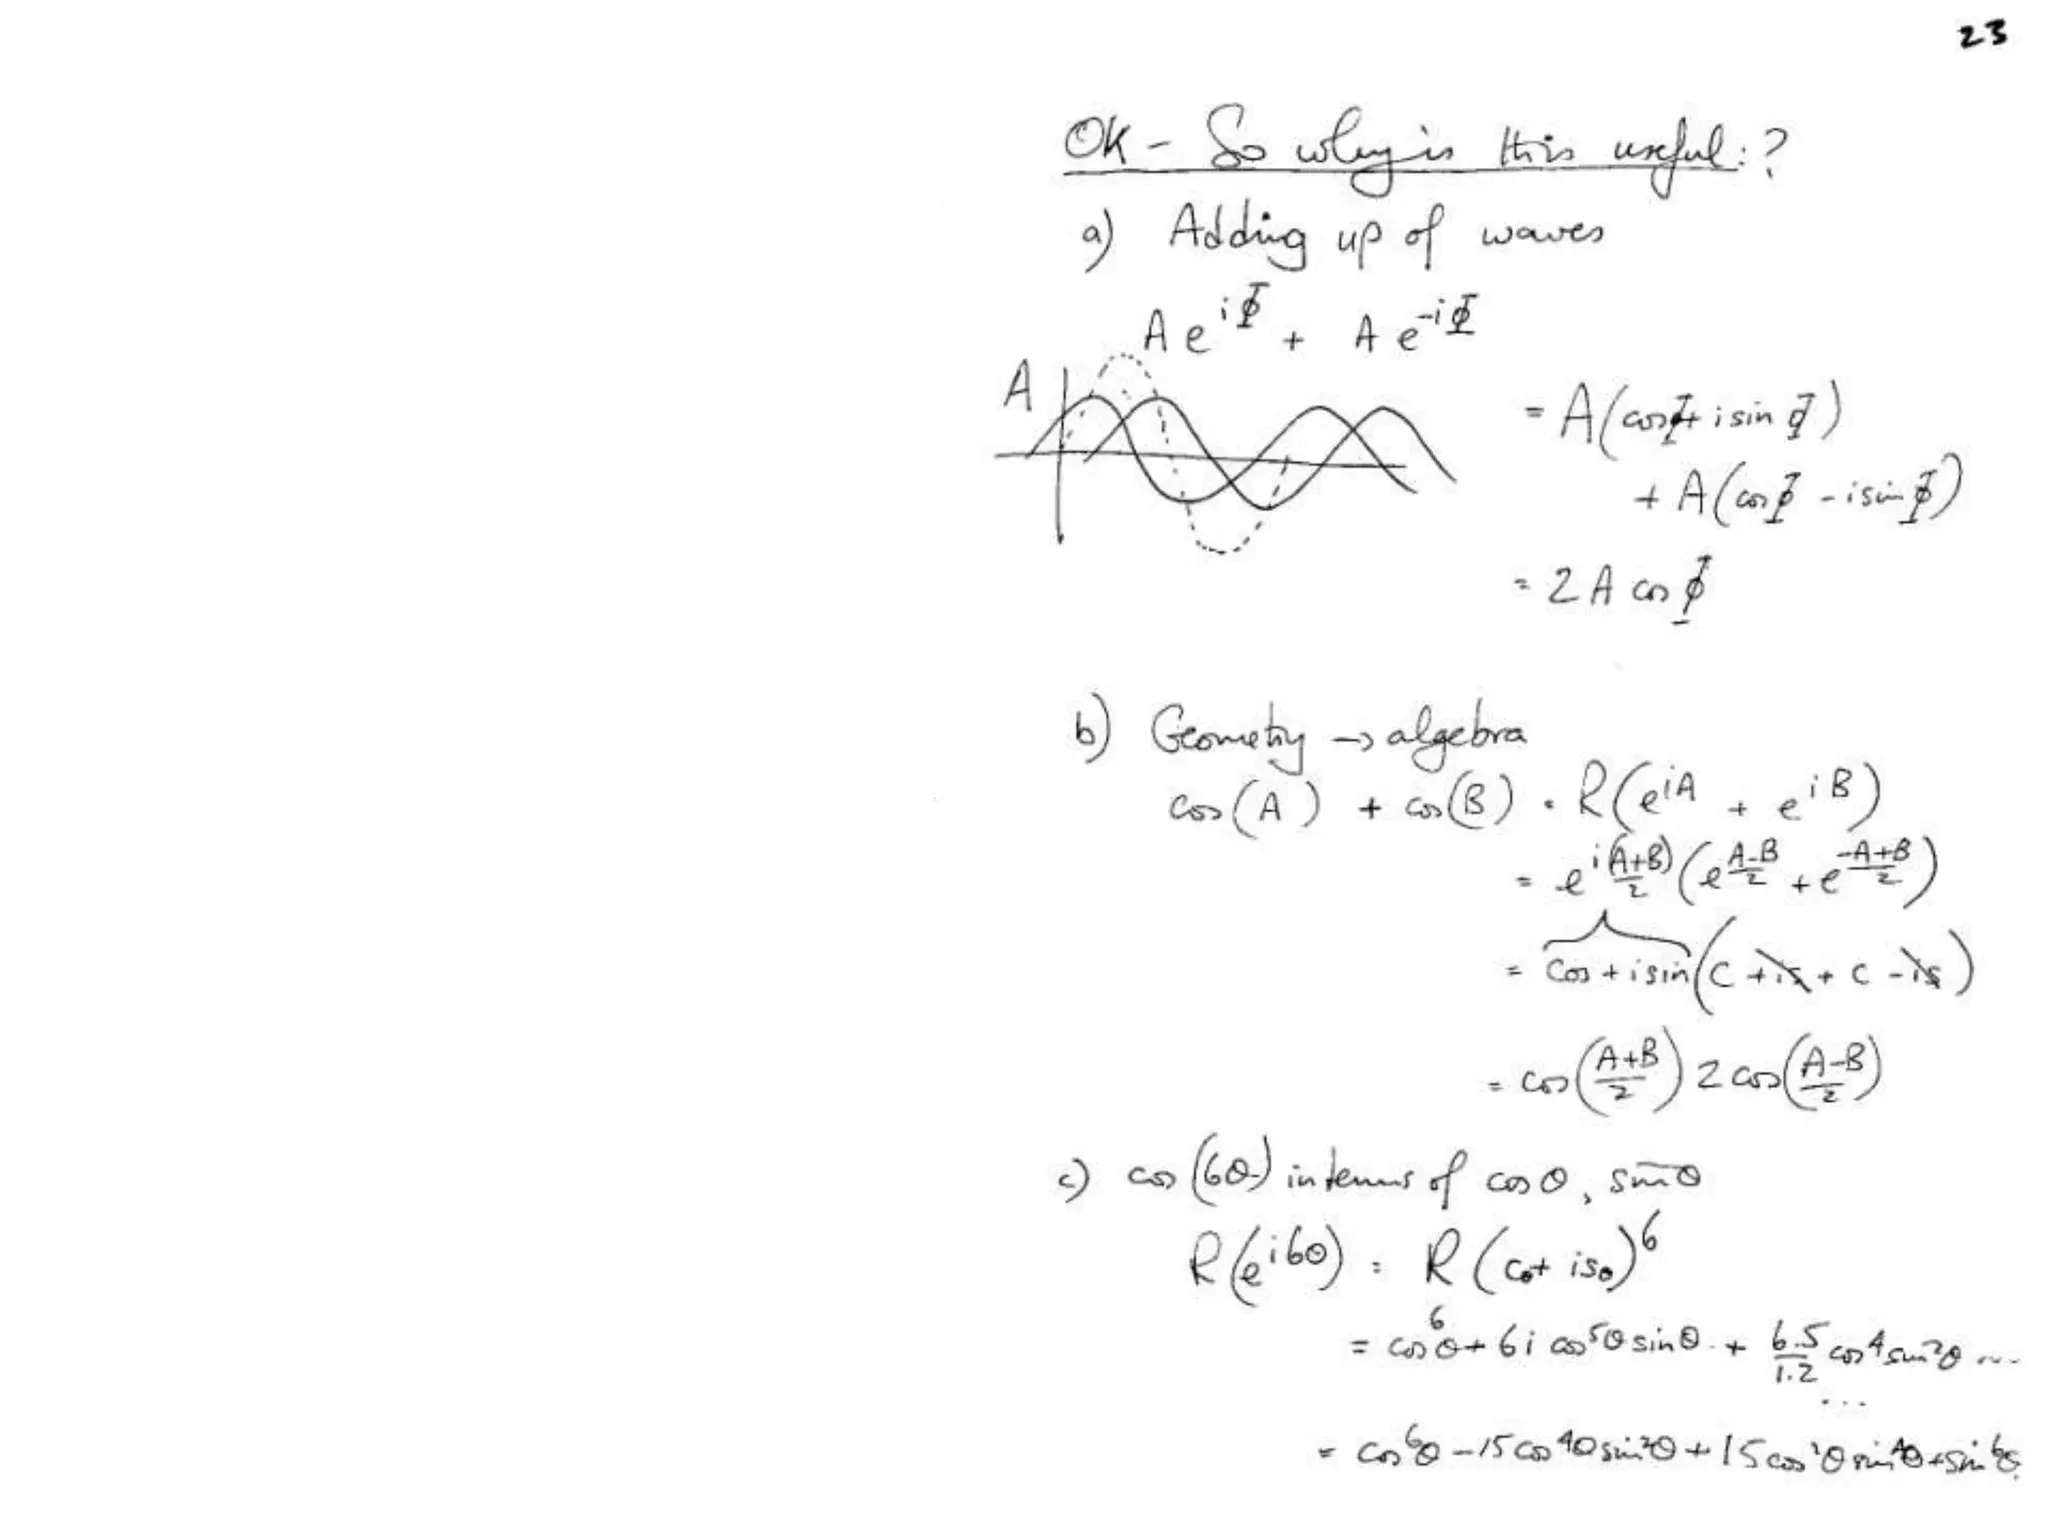 23
OK - So why is this useful:?
a) Adding up of waves
A e^{iΦ} + A e^{-iΦ}
A
= A(cosΦ + i sin Φ)
+ A(cosΦ - i sin Φ)
= 2 A cos Φ
b) Geometry → algebra
cos(A) + cos(B) = R(e^{iA} + e^{iB})
= e^{i(A+B)/2} (e^{(A-B)/2} + e^{(-A+B)/2})
= cos + i sin (c + is + c - is)
= cos((A+B)/2) 2 cos((A-B)/2)
c) cos(6θ) in terms of cos θ, sin θ
R(e^{i6θ}) = R(cθ + isθ)^6
= cos^6 θ + 6i cos^5 θ sin θ + 6.5/1.2 cos^4 sin^2 θ ...
...
= cos^6 θ - 15 cos^4 θ sin^2 θ + 15 cos^2 θ sin^4 θ + sin^6 θ.